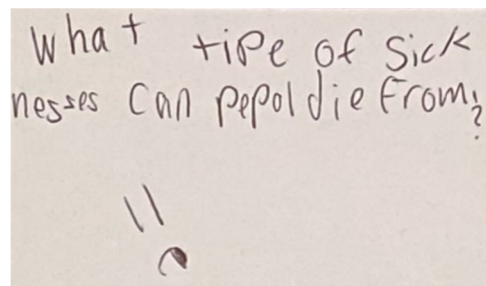 What tipe of sick
nesses can pepol die from?
!!